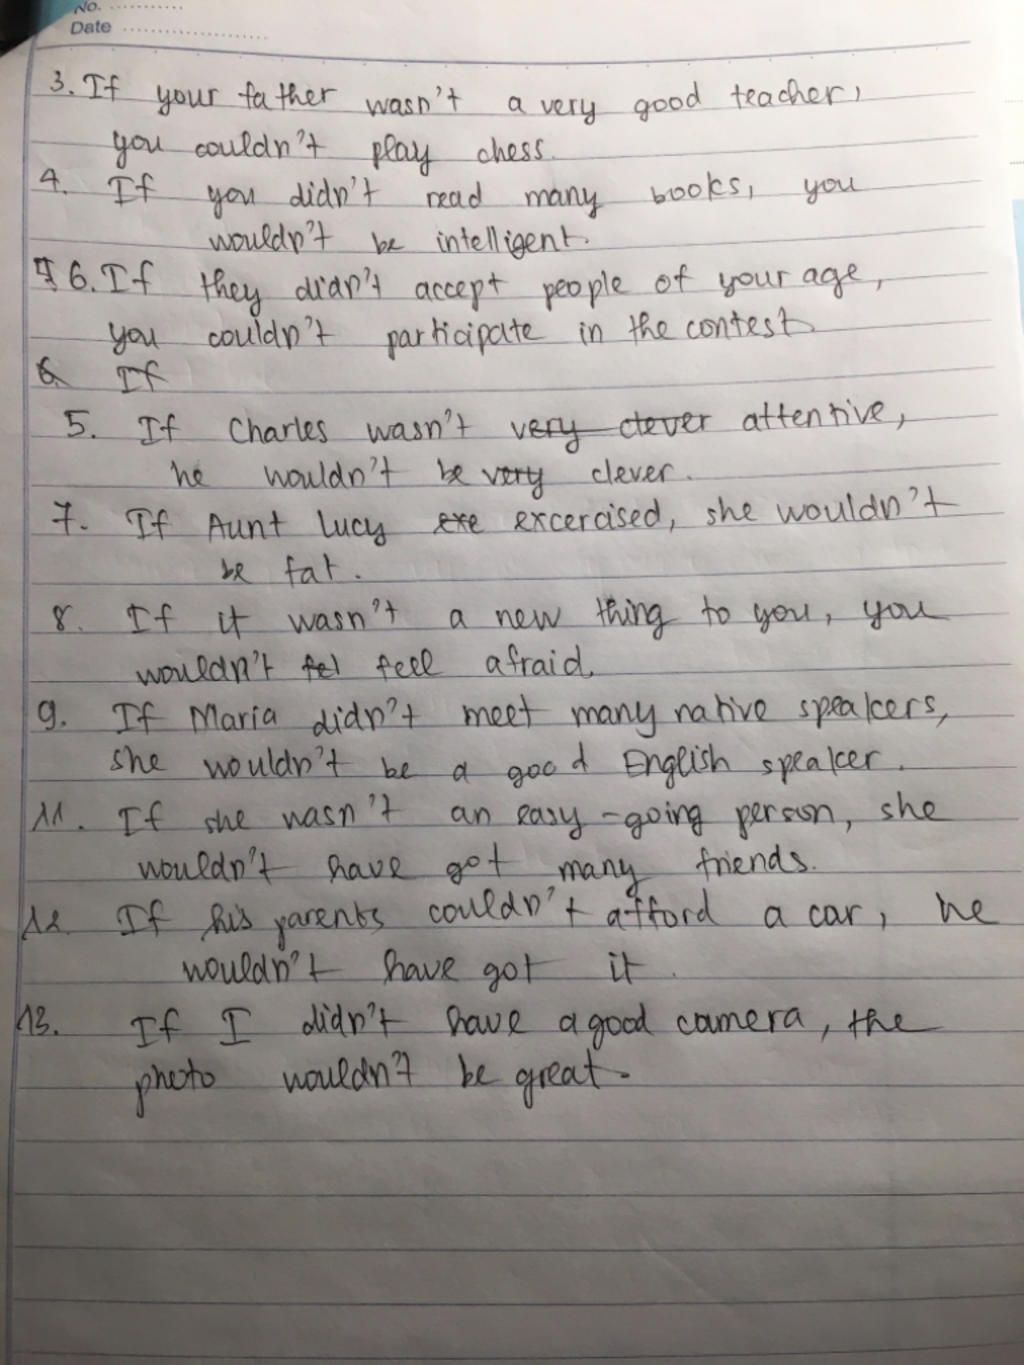 No. ..........
Date ....................
3. If your father wasn't a very good teacher,
you couldn't play chess.
4. If you didn't read many books, you
wouldn't be intelligent.
6. If they didn't accept people of your age,
you couldn't participate in the contest
6 If
5. If Charles wasn't very clever attentive,
he wouldn't be very clever.
7. If Aunt Lucy exe excercised, she wouldn't
be fat.
8. If it wasn't a new thing to you, you
wouldn't fel feel afraid.
9. If Maria didn't meet many native speakers,
she wouldn't be a good English speaker.
11. If she wasn't an easy-going person, she
wouldn't have got many friends.
12. If his parents couldn't afford a car, he
wouldn't have got it.
13. If I didn't have a good camera, the
photo wouldn't be great.